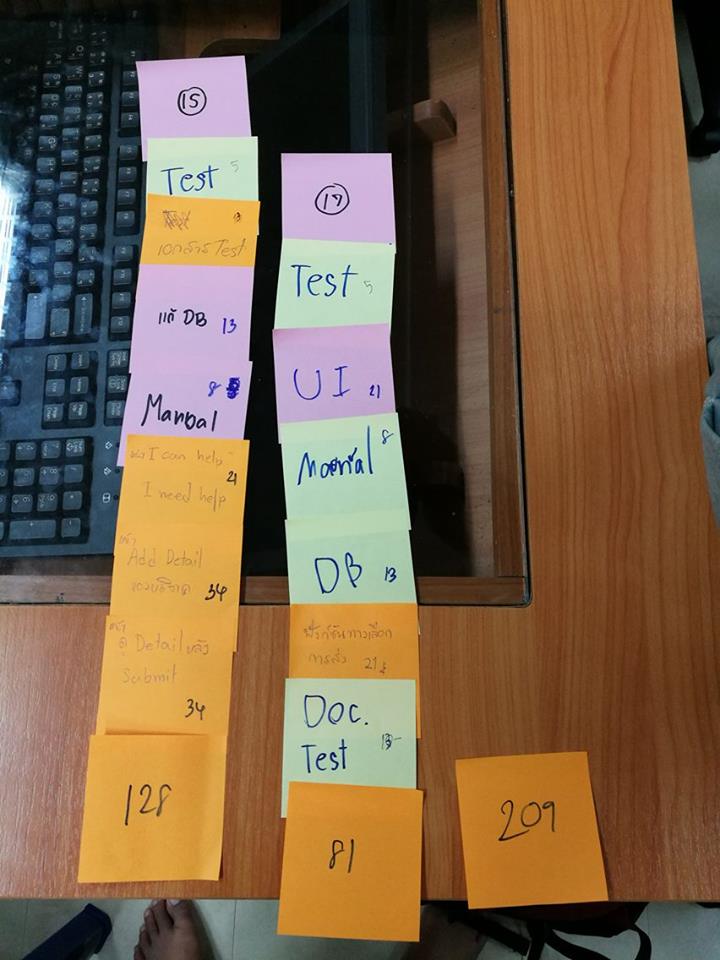 15
Test 5
13
เอกสาร Test
แก้ DB 13
8
Manual
หน้า I can help
21
I need help
หน้า
Add Detail
ของบริจาค 34
หน้า
ดู Detail หลัง
Submit
34
128
17
Test 5
UI 21
Manual 8
DB 13
ฟังก์ชันทางเลือก
การส่ง 21
Doc. 13
Test
81
209